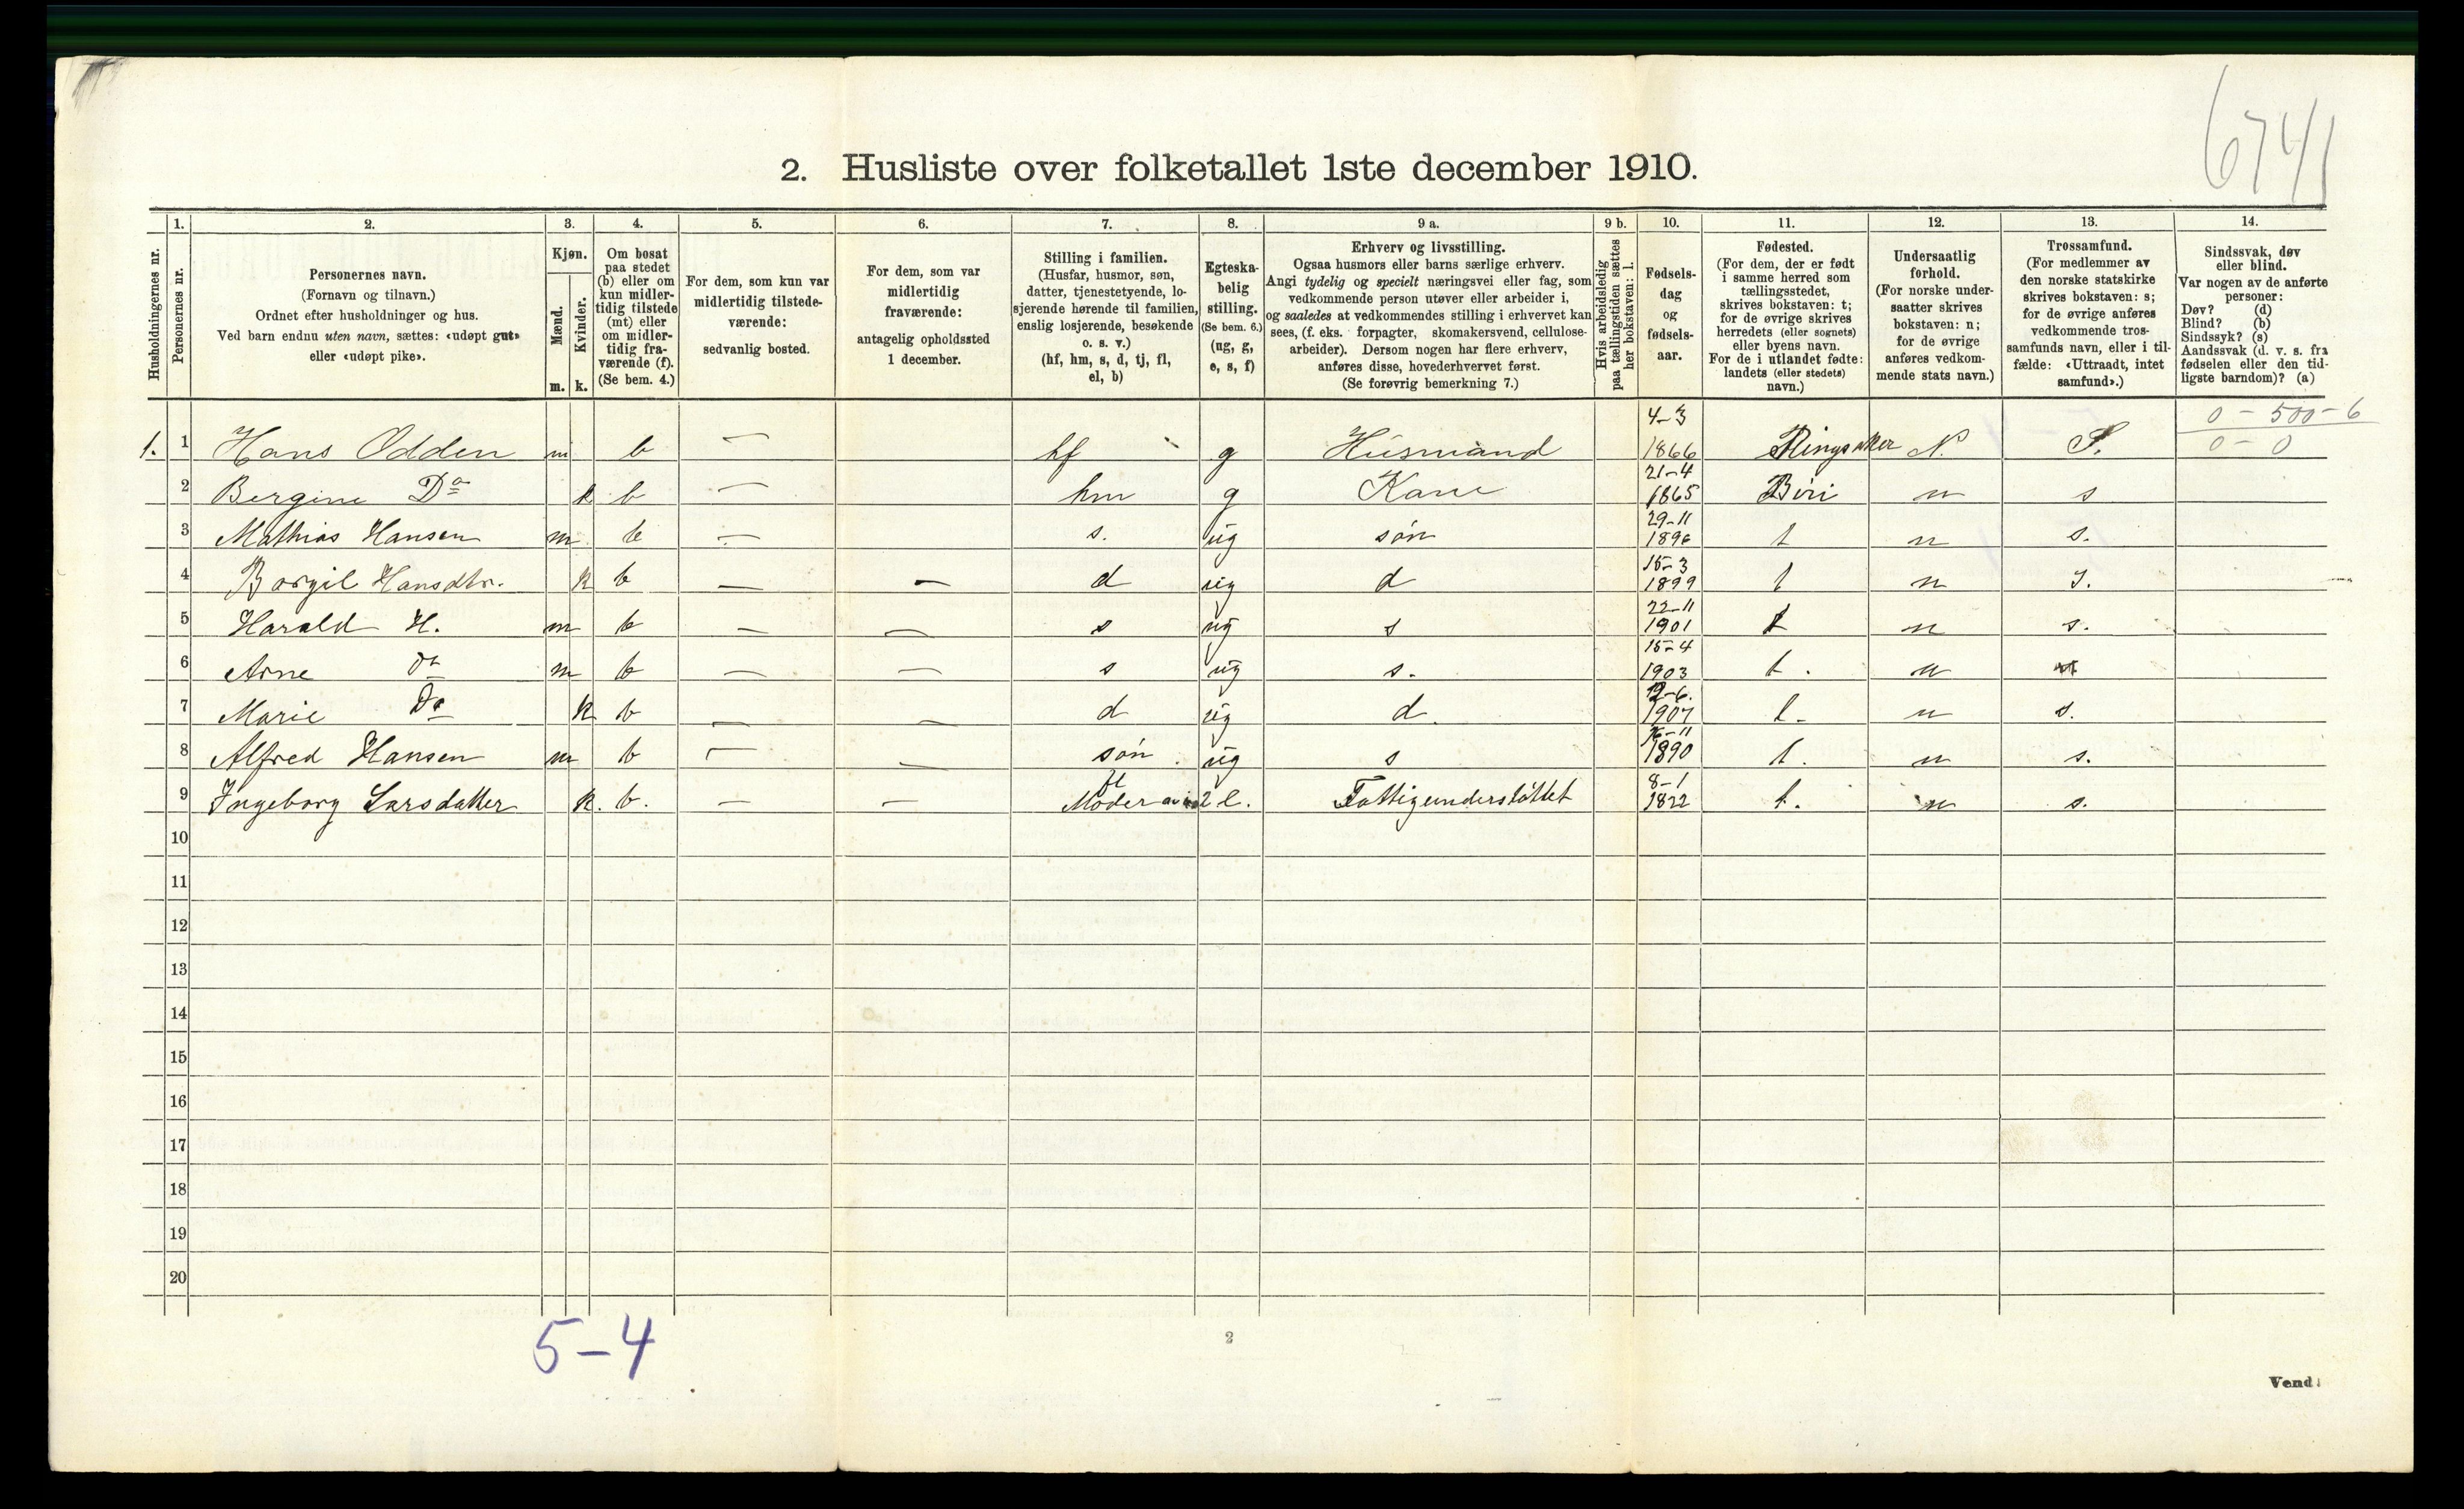 6741
2. Husliste over folketallet 1ste december 1910.
Husholdningernes nr.
1.
Personernes nr.
2.
Personernes navn.
(Fornavn og tilnavn.)
Ordnet efter husholdninger og hus.
Ved barn endnu uten navn, sættes: «udøpt gut»
eller «udøpt pike».
3.
Kjøn.
Mænd.
Kvinder.
m. k.
4.
Om bosat
paa stedet
(b) eller om
kun midler-
tidig tilstede
(mt) eller
om midler-
tidig fra-
værende (f).
(Se bem. 4.)
5.
For dem, som kun var
midlertidig tilstede-
værende:
sedvanlig bosted.
6.
For dem, som var
midlertidig
fraværende:
antagelig opholdssted
1 december.
7.
Stilling i familien.
(Husfar, husmor, søn,
datter, tjenestetyende, lo-
sjerende hørende til familien,
enslig losjerende, besøkende
o. s. v.)
(hf, hm, s, d, tj, fl,
el, b)
8.
Egteska-
belig
stilling.
(Se bem. 6.)
(ug, g,
e, s, f)
9 a.
Erhverv og livsstilling.
Ogsaa husmors eller barns særlige erhverv.
Angi tydelig og specielt næringsvei eller fag, som
vedkommende person utøver eller arbeider i,
og saaledes at vedkommendes stilling i erhvervet kan
sees, (f. eks. forpagter, skomakersvend, cellulose-
arbeider). Dersom nogen har flere erhverv,
anføres disse, hovederhvervet først.
(Se forøvrig bemerkning 7.)
9 b.
Hvis arbeidsledig
paa tællingstiden sættes
her bokstaven: l.
10.
Fødsels-
dag
og
fødsels-
aar.
11.
Fødested.
(For dem, der er født
i samme herred som
tællingsstedet,
skrives bokstaven: t;
for de øvrige skrives
herredets (eller sognets)
eller byens navn.
For de i utlandet fødte:
landets (eller stedets)
navn.)
12.
Undersaatlig
forhold.
(For norske under-
saatter skrives
bokstaven: n;
for de øvrige
anføres vedkom-
mende stats navn.)
13.
Trossamfund.
(For medlemmer av
den norske statskirke
skrives bokstaven: s;
for de øvrige anføres
vedkommende tros-
samfunds navn, eller i til-
fælde: «Uttraadt, intet
samfund».)
14.
Sindssvak, døv
eller blind.
Var nogen av de anførte
personer:
Døv? (d)
Blind? (b)
Sindssyk? (s)
Aandssvak (d. v. s. fra
fødselen eller den tid-
ligste barndom)? (a)
0 - 500 - 6
0 - 0
1. 1 Hans Odden m b — hf g Husmand 4-3 1866 Ringsaker N. S.
2 Bergine Do k b — hm g Kane 21-4 1865 Biri n s
3 Mathias Hansen m b — s. ug søn 29-11 1896 t n s.
4 Borgil Hansdtr. k b — — d ug d 15-3 1899 t n s.
5 Harald H. m b — — s ug s 22-11 1901 t n s.
6 Arne do m b — — s ug s. 15-4 1903 t. n
7 Marie Do k b — — d ug d. 12-6. 1907 t. n s.
8 Alfred Hansen m b — — søn. ug s 16-11 1890 t. n s.
9 Ingeborg Larsdatter k. b. — — fl Moder e. Fattigunderstøttet 8-1 1822 t. n s.
10
11
12
13
14
15
16
17
18
19
20
5-4
2
Vend!